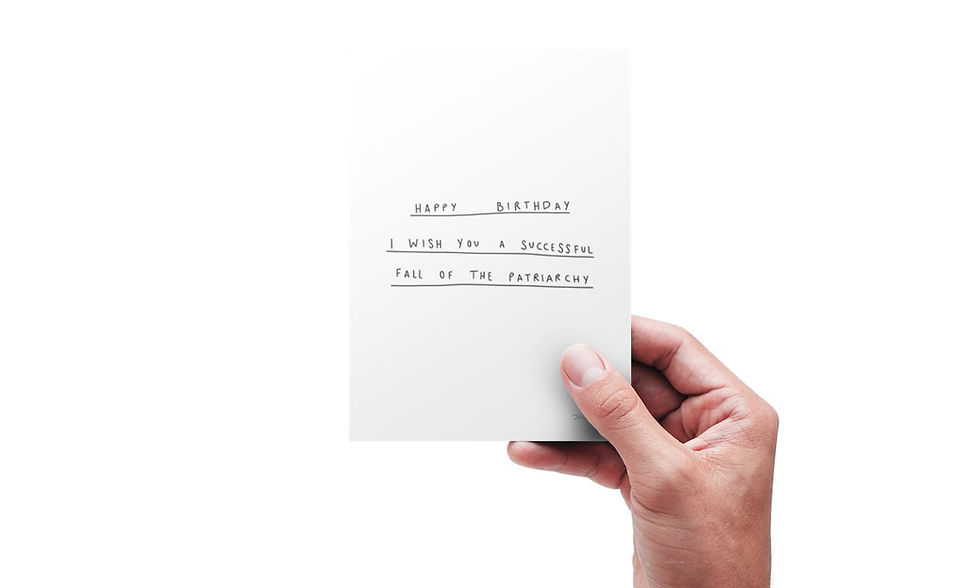 HAPPY BIRTHDAY
I WISH YOU A SUCCESSFUL
FALL OF THE PATRIARCHY